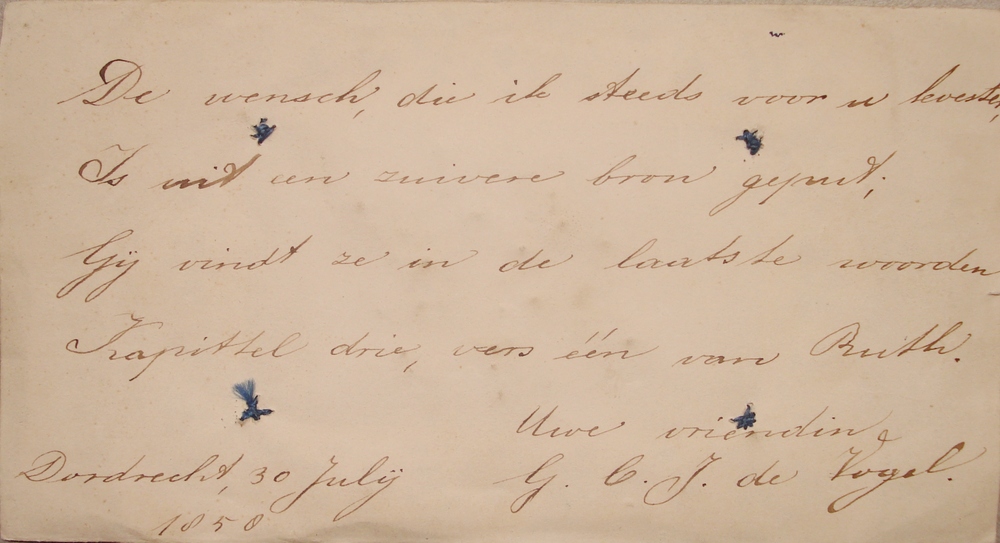 De wensch, die ik steeds voor u
Is uit een zuivere bron geput;
Gij vindt ze in de laatste woorden
Kapittel drie, vers één van Ruth.
Uwe vriendin
G. C. J. de Vogel.
Dordrecht, 30 Julij
1858